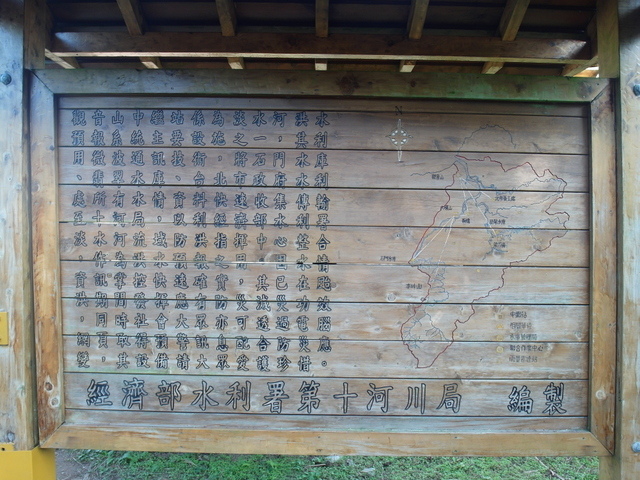 觀音山中繼站係為淡水河洪水
預報系統主要設施之一，其利
用微波通訊技術，將石門水庫
、翡翠水庫、台北市政府水利
處所有水情資料快速收集傳輸
至十河局，以利經濟部水利署
淡水河流域防洪指揮中心整合
，作為洪水預報之用，因水情
資訊掌控快速確實，其已在颱
洪期間發揮應有防災減災功效
，同時社會大眾亦可透過電腦
網頁取得預警訊息配合防災應
變，其設備請大眾愛護珍惜。
經濟部水利署第十河川局 編製